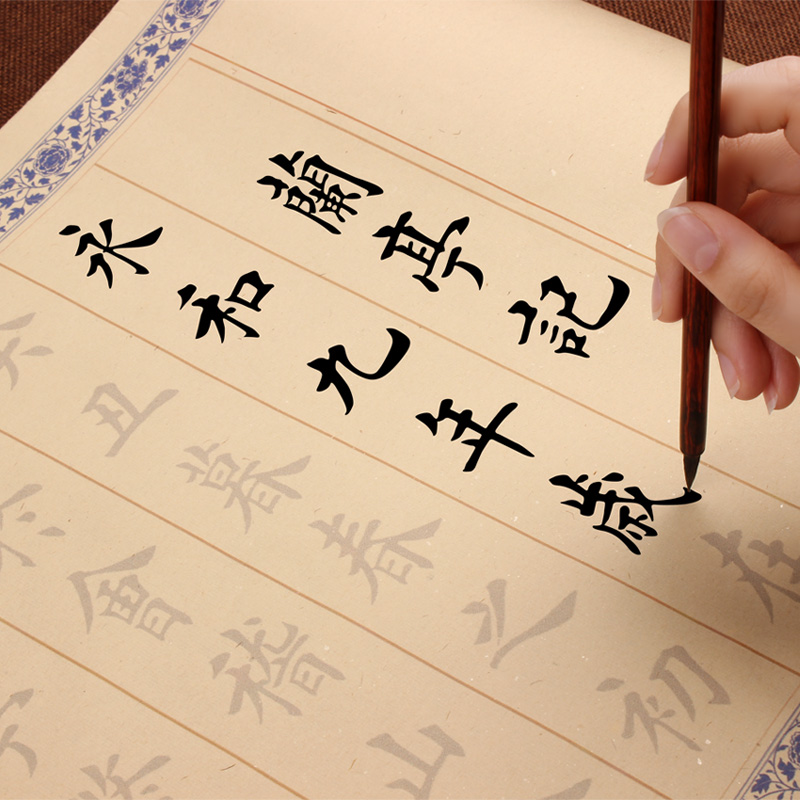 蘭亭記
永和九年歲在
丑暮春之初
會稽山